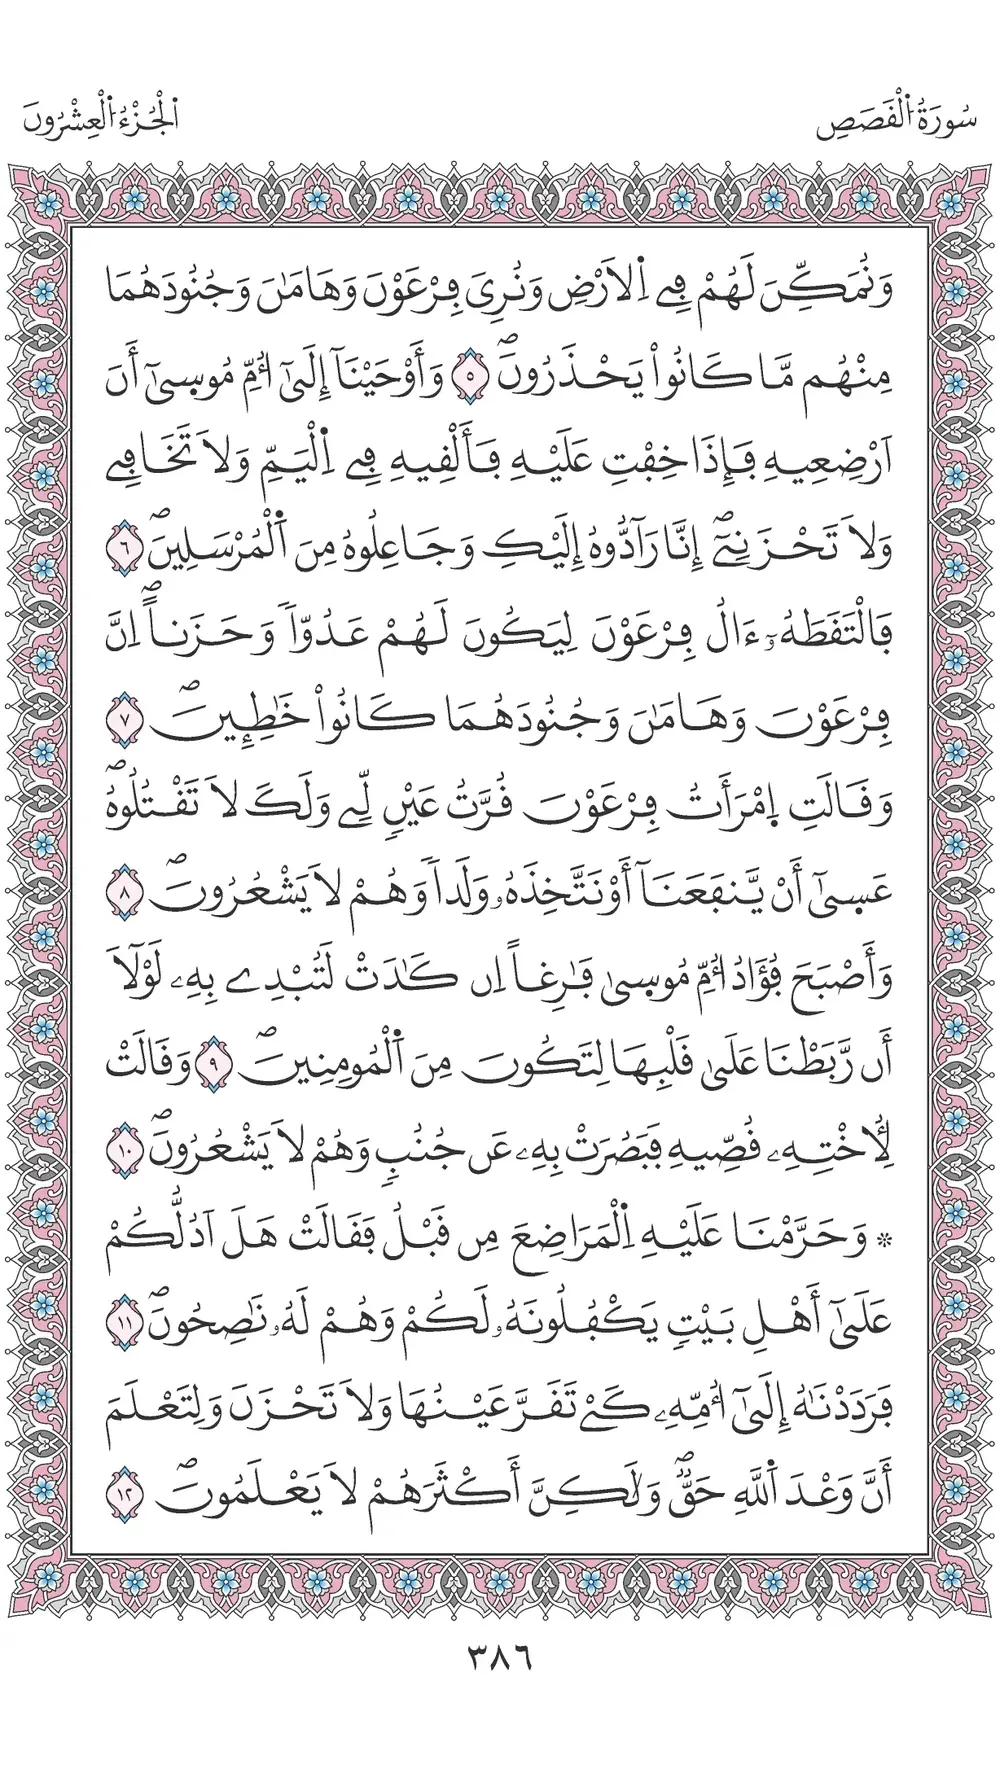 سُورَةُ اُ۬لْقَصَصِ
اَ۬لْجُزْءُ اُ۬لْعِشْرُونَ
وَنُمَكِّنَ لَهُمْ فِے اِ۬لَارْضِ وَنُرِيَ فِرْعَوْنَ وَهَٰمَٰنَ وَجُنُودَهُمَا
مِنْهُم مَّا كَانُواْ يَحْذَرُونَۖ ٥ وَأَوْحَيْنَآ إِلَيٰٓ أُمِّ مُوس۪يٰٓ أَنَ
اَرْضِعِيهِ فَإِذَا خِفْتِ عَلَيْهِ فَأَلْقِيهِ فِے اِ۬لْيَمِّ وَلَا تَخَافِے
وَلَا تَحْزَنِےٓۖ إِنَّا رَآدُّوهُ إِلَيْكِ وَجَاعِلُوهُ مِنَ اَ۬لْمُرْسَلِينَۖ ٦
فَالْتَقَطَهُۥٓ ءَالُ فِرْعَوْنَ لِيَكُونَ لَهُمْ عَدُوّاٗ وَحَزَناًۖ اِنَّ
فِرْعَوْنَ وَهَٰمَٰنَ وَجُنُودَهُمَا كَانُواْ خَٰطِـِٕينَۖ ٧
وَقَالَتِ اِ۪مْرَأَتُ فِرْعَوْنَ قُرَّتُ عَيْنٖ لِّے وَلَكَ لَا تَقْتُلُوهُۖ
عَس۪يٰٓ أَنْ يَّنفَعَنَآ أَوْ نَتَّخِذَهُۥ وَلَداٗ وَهُمْ لَا يَشْعُرُونَۖ ٨
وَأَصْبَحَ فُؤَادُ أُمِّ مُوس۪يٰ فَٰرِغاً اِن كَادَتْ لَتُبْدِے بِهِۦ لَوْلَآ
أَن رَّبَطْنَا عَلَيٰ قَلْبِهَا لِتَكُونَ مِنَ اَ۬لْمُومِنِينَۖ ٩ وَقَالَتْ
لِأُخْتِهِۦ قُصِّيهِ فَبَصُرَتْ بِهِۦ عَن جُنُبٖ وَهُمْ لَا يَشْعُرُونَۖ ١٠
* وَحَرَّمْنَا عَلَيْهِ اِ۬لْمَرَاضِعَ مِن قَبْلُ فَقَالَتْ هَلَ اَدُلُّكُمْ
عَلَيٰٓ أَهْلِ بَيْتٖ يَكْفُلُونَهُۥ لَكُمْ وَهُمْ لَهُۥ نَٰصِحُونَۖ ١١
فَرَدَدْنَٰهُ إِلَيٰٓ أُمِّهِۦ كَےْ تَقَرَّ عَيْنُهَا وَلَا تَحْزَنَ وَلِتَعْلَمَ
أَنَّ وَعْدَ اَ۬للَّهِ حَقّٞۖ وَلَٰكِنَّ أَكْثَرَهُمْ لَا يَعْلَمُونَۖ ١٢
٣٨٦